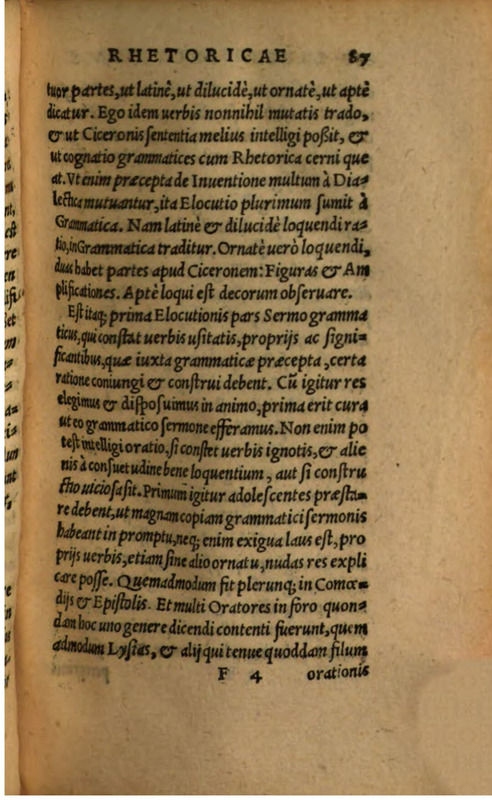 RHETORICAE 87
tuor partes, ut latinè, ut dilucidè, ut ornatè, ut aptè
dicatur. Ego idem uerbis nonnihil mutatis trado,
& ut Ciceronis sententia melius intelligi poßit, &
ut cognatio grammatices cum Rhetorica cerni que
at. Vt enim præcepta de Inuentione multum à Dia-
lectica mutuantur, ita Elocutio plurimum sumit à
Grammatica. Nam latinè & dilucidè loquendi ra-
tio, in Grammatica traditur. Ornatè uerò loquendi,
duas habet partes apud Ciceronem: Figuras & Am
plificationes. Aptè loqui est decorum obseruare.
Est itaq; prima Elocutionis pars Sermo gramma
ticus, qui constat uerbis usitatis, proprijs ac signi-
ficantibus, quæ iuxta grammaticæ præcepta, certa
ratione coniungi & construi debent. Cũ igitur res
elegimus & disposuimus in animo, prima erit cura
ut eo grammatico sermone efferamus. Non enim po
test intelligi oratio, si constet uerbis ignotis, & alie
nis à consuetudine bene loquentium, aut si constru
ctio uiciosa sit. Primum igitur adolescentes præsta-
re debent, ut magnam copiam grammatici sermonis
habeant in promptu, neq; enim exigua laus est, pro
prijs uerbis, etiam sine alio ornatu, nudas res expli
care posse. Quemadmodum fit plerunq; in Comœ-
dijs & Epistolis. Et multi Oratores in foro quon-
dam hoc uno genere dicendi contenti fuerunt, quem
admodum Lysias, & alij qui tenue quoddam filum
F 4 orationis